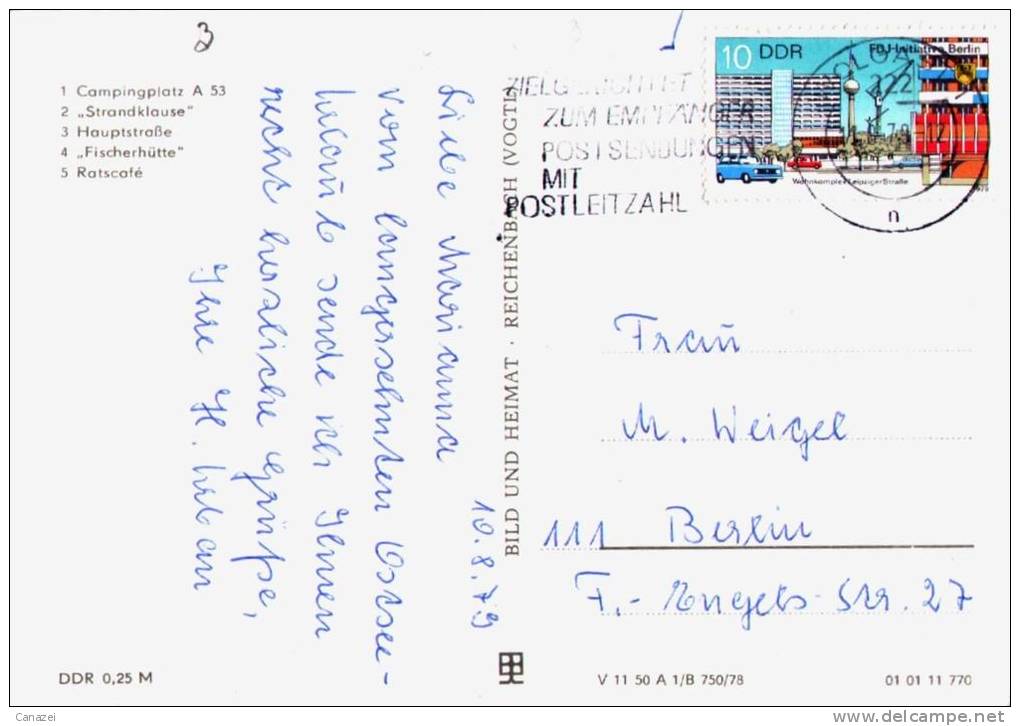 3
1 Campingplatz A 53
2 „Strandklause"
3 Hauptstraße
4 „Fischerhütte"
5 Ratscafé
10.8.79
Liebe Marianna
vom langersehnten Ostsee-
urlaub sende ich Ihnen
recht herzliche Grüße,
Ihre H.
BILD UND HEIMAT · REICHENBACH (VOGTL
ZIELGERICHTET
ZUM EMPFÄNGER
POSTSENDUNGEN
MIT
POSTLEITZAHL
10 DDR
FDJ-Initiative Berlin
Wohnkomplex Leipziger Straße
1979
222
n
Frau
M. Weigel
111 Berlin
F.-Engels-Str. 27
DDR 0,25 M
V 11 50 A 1/B 750/78
01 01 11 770
Canazei
www.delcampe.net